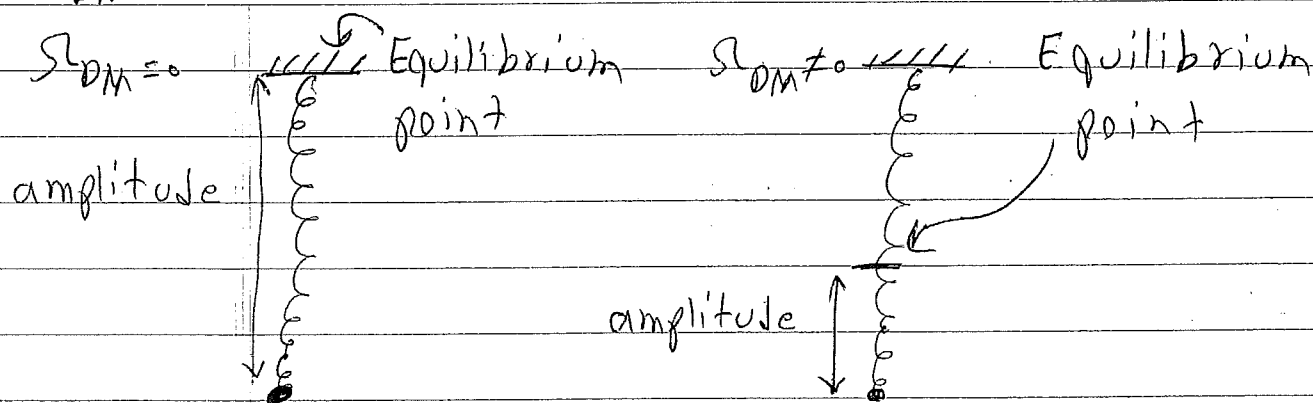 Ω_DM = 0 Equilibrium point
amplitude
Ω_DM ≠ 0 Equilibrium point
amplitude